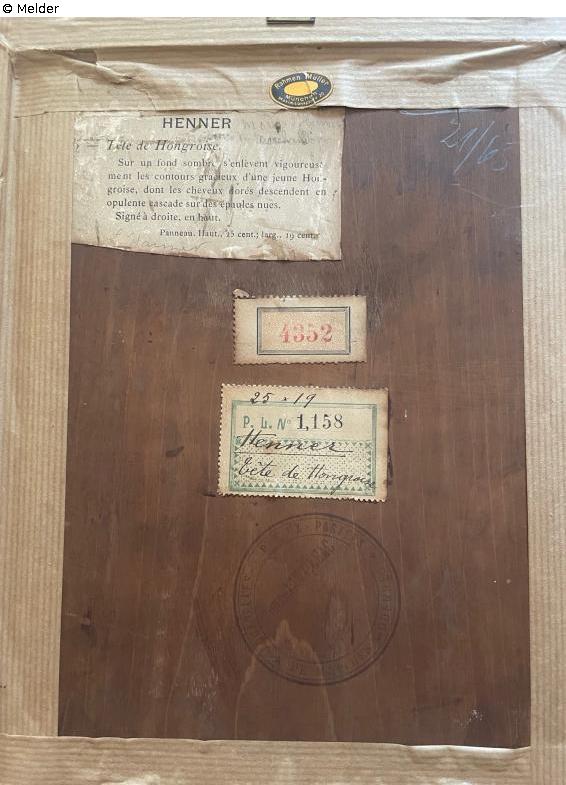 © Melder
Rahmen Müller
München
HENNER
Tête de Hongroise.
Sur un fond sombre s'enlèvent vigoureuse-
ment les contours gracieux d'une jeune Hon-
groise, dont les cheveux dorés descendent en
opulente cascade sur des épaules nues.
Signé à droite, en haut.
Panneau. Haut., 25 cent.; larg., 19 cent.
21/65
4352
25 x 19
P. L. No 1,158
Henner
Tête de Hongroise